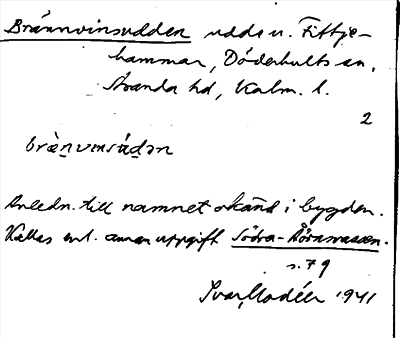 Brännvinsudden udde v. Fittje-
hammar, Döderhults sn,
Stranda hd, Kalm. l.
2
brènvinsúdən
Anledn. till namnet okänd i bygden.
Kallas enl. annan uppgift Södra-
s. 79
Ivar Modéer 1941